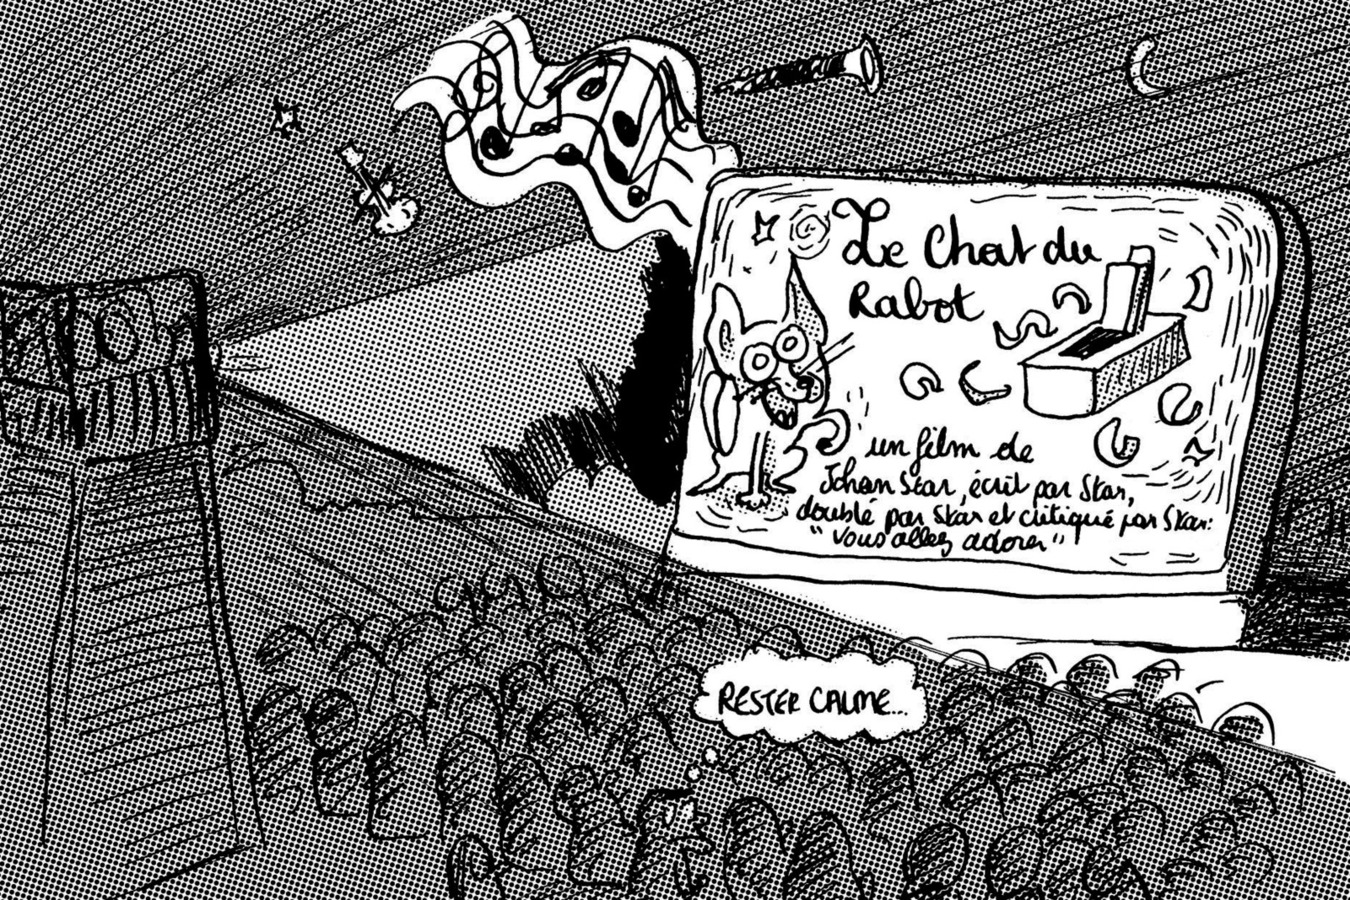 Le Chat du
Rabot
un film de
Johan Star, écrit par Star,
doublé par Star et critiqué par Star:
"vous allez adorer"
RESTER CALME...